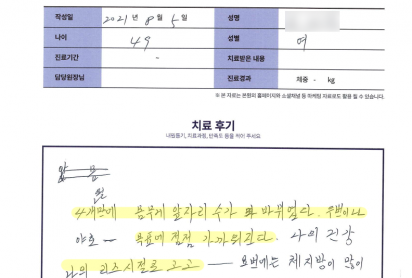 작성일 2021년 8월 5일 성명
나이 49 성별 여
진료기간 - 치료받은 내용
담당원장님 진료결과 체중 - kg
※ 본 자료는 본원의 홈페이지와 소셜채널 등 마케팅 자료로도 활용 될 수 있습니다.
치료 후기
내원동기, 치료과정, 만족도 등을 적어 주세요
4개만에 몸무게 앞자리 수가 바뀌었다.
야호 ― 목표에 점점 가까워진다. 나이 건강
나의 리즈시절로 고고 ― 요번에는 체지방이 많이